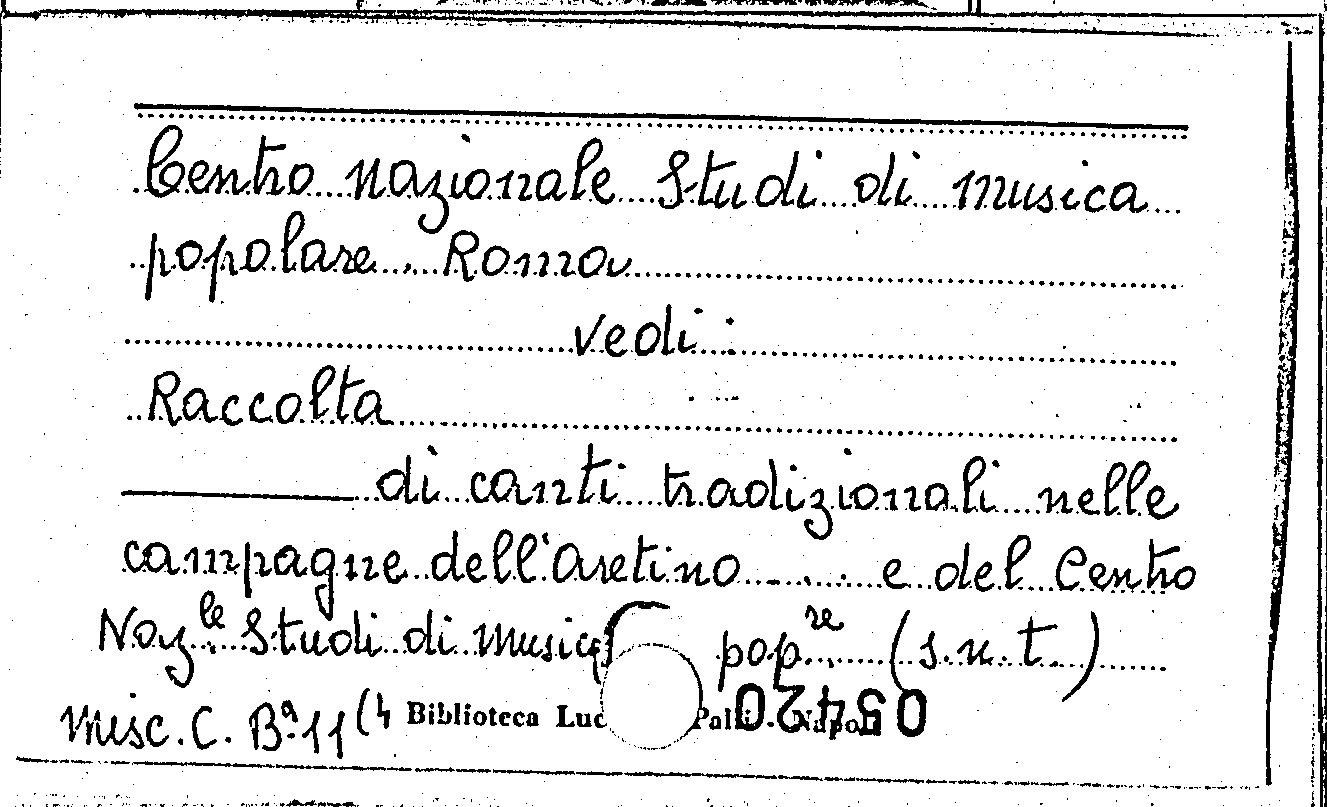 Centro Nazionale Studi di musica
popolare Roma
vedi:
Raccolta
di canti tradizionali nelle
campagne dell'aretino e del Centro
Naz.le Studi di Musica pop.re (s.n.t.)
Misc. C. Bª 11 (4 Biblioteca Luc Palli - Napoli 05420